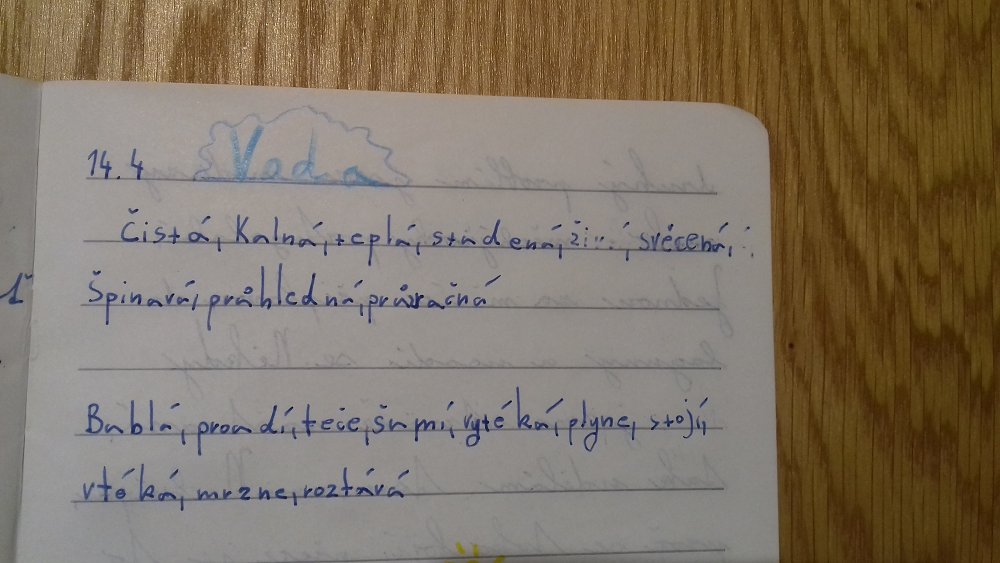 14.4 Voda
Čistá, Kalná, teplá, studená, svěcená,
Špinavá, průhledná, průzračná
Bublá, proudí, teče, šumí, vytéká, plyne, stojí,
vtéká, mrzne, roztává